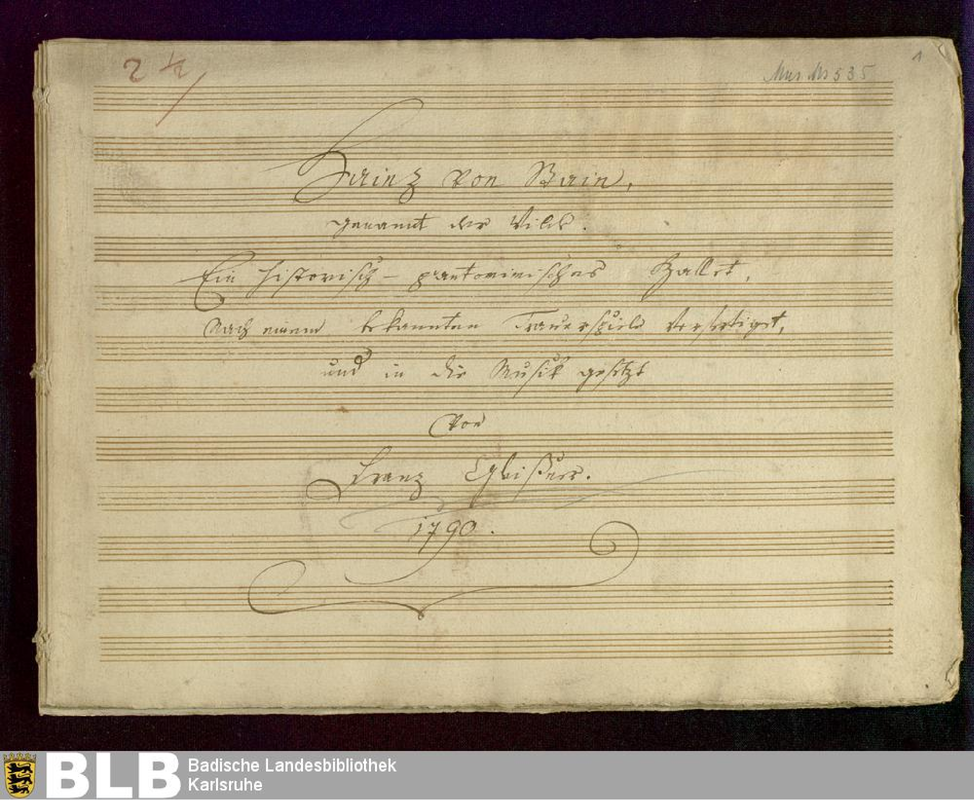 24
Mus. Ms 535
1
Hainz von Stain,
genannt der Wilde.
Ein historisch-pantomimisches Ballet,
Nach einem bekannten Trauerspiele verfertiget,
und in die Musik gesetzt
von
Franz Gleißner.
1790.
BLB
Badische Landesbibliothek
Karlsruhe